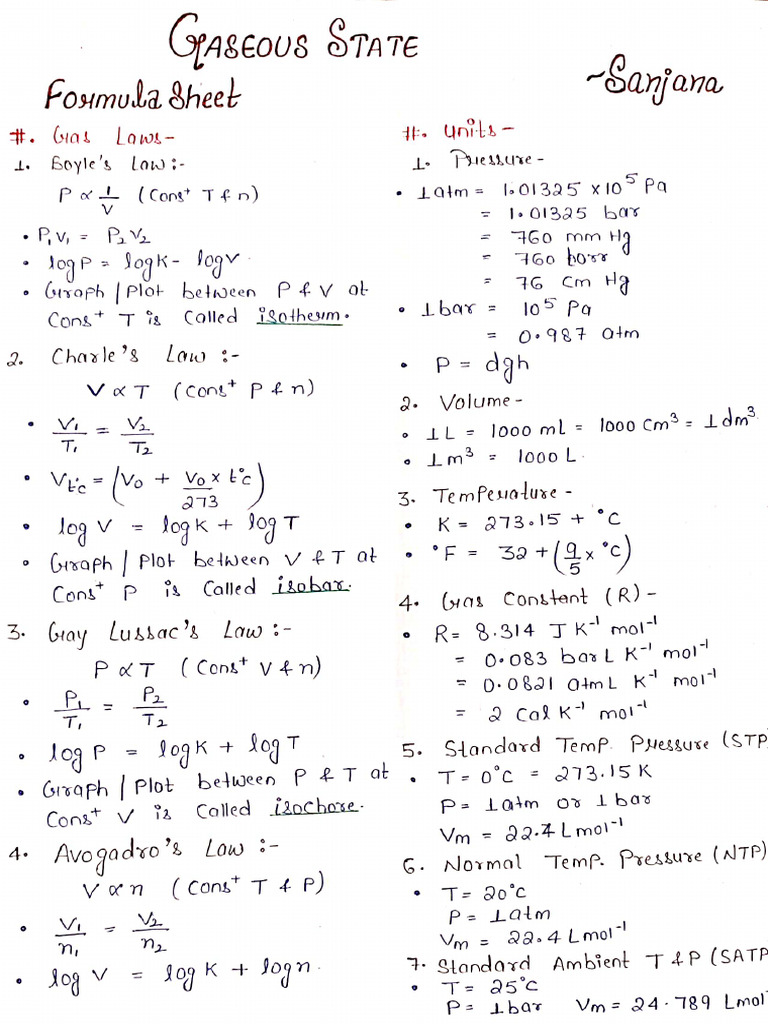 GASEOUS STATE
Formula Sheet
~Sanjana
#. Gas Laws-
1. Boyle's Law:-
P ∝ 1/V (Cons⁺ T & n)
• P₁V₁ = P₂V₂
• log P = log K - log V
• Graph / Plot between P & V at
Cons⁺ T is Called isotherm.
2. Charle's Law :-
V ∝ T (Cons⁺ P & n)
• V₁/T₁ = V₂/T₂
• Vt°c = (V₀ + V₀/273 × t°c)
• log V = log K + log T
• Graph / Plot between V & T at
Cons⁺ P is Called isobar.
3. Gay Lussac's Law:-
P ∝ T (Cons⁺ V & n)
• P₁/T₁ = P₂/T₂
• log P = log K + log T
• Graph / Plot between P & T at
Cons⁺ V is Called isochore.
4. Avogadro's Law :-
V ∝ n (Cons⁺ T & P)
• V₁/n₁ = V₂/n₂
• log V = log K + log n.
#. Units-
1. Pressure-
• 1 atm = 1.01325 × 10⁵ Pa
= 1.01325 bar
= 760 mm Hg
= 760 torr
= 76 cm Hg
• 1 bar = 10⁵ Pa
= 0.987 atm
• P = dgh
2. Volume-
• 1L = 1000 mL = 1000 cm³ = 1dm³
• 1m³ = 1000 L
3. Temperature-
• K = 273.15 + °C
• °F = 32 + (9/5 × °C)
4. Gas Constant (R)-
• R = 8.314 J K⁻¹ mol⁻¹
= 0.083 bar L K⁻¹ mol⁻¹
= 0.0821 atm L K⁻¹ mol⁻¹
= 2 Cal K⁻¹ mol⁻¹
5. Standard Temp. Pressure (STP)
• T = 0°C = 273.15 K
P = 1atm or 1 bar
Vm = 22.4 L mol⁻¹
6. Normal Temp. Pressure (NTP)
• T = 20°C
P = 1atm
Vm = 22.4 L mol⁻¹
7. Standard Ambient T & P (SATP
• T = 25°C
P = 1bar Vm = 24.789 L mol⁻¹